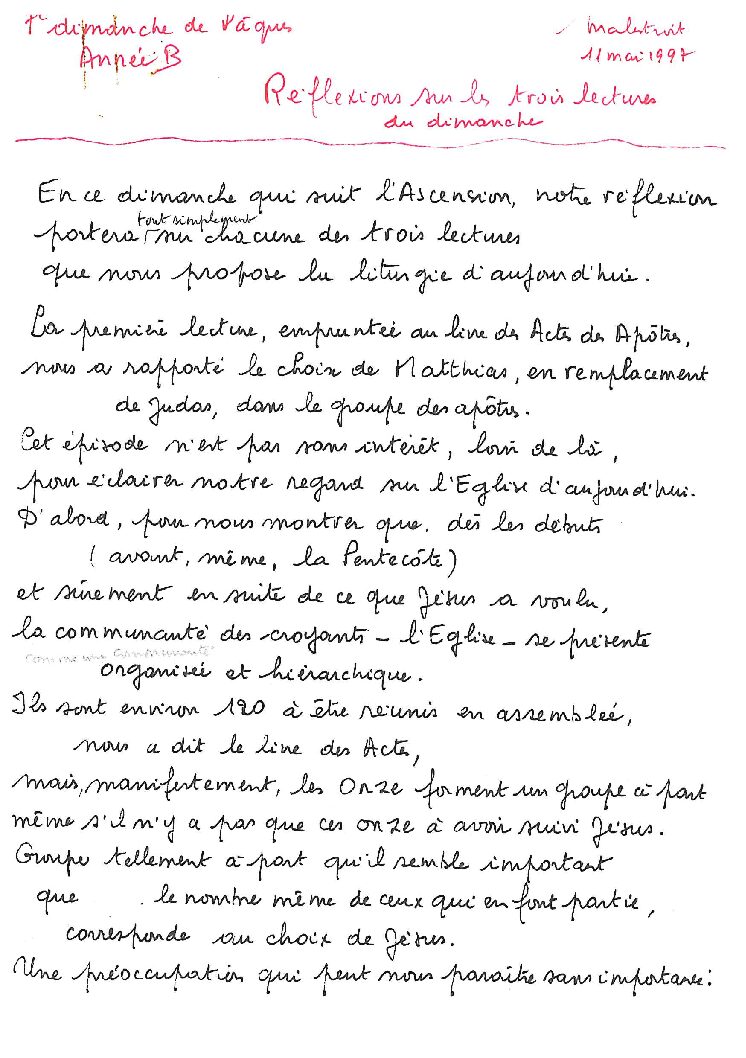 7e dimanche de Pâques
Année B
Malestroit
11 mai 1997
Réflexions sur les trois lectures
du dimanche
En ce dimanche qui suit l'Ascension, notre réflexion
tout simplement
portera sur chacune des trois lectures
que nous propose la liturgie d'aujourd'hui.
La première lecture, empruntée au livre des Actes des Apôtres,
nous a rapporté le choix de Matthias, en remplacement
de Judas, dans le groupe des apôtres.
Cet épisode n'est pas sans intérêt, loin de là,
pour éclairer notre regard sur l'Eglise d'aujourd'hui.
D'abord, pour nous montrer que, dès les débuts
(avant, même, la Pentecôte)
et sûrement en suite de ce que Jésus a voulu,
la communauté des croyants - l'Eglise - se présente
comme une communauté
organisée et hiérarchique.
Ils sont environ 120 à être réunis en assemblée,
nous a dit le livre des Actes,
mais, manifestement, les Onze forment un groupe à part
même s'il n'y a pas que ces onze à avoir suivi Jésus.
Groupe tellement à part qu'il semble important
que le nombre même de ceux qui en font partie,
corresponde au choix de Jésus.
Une préoccupation qui peut nous paraître sans importance: